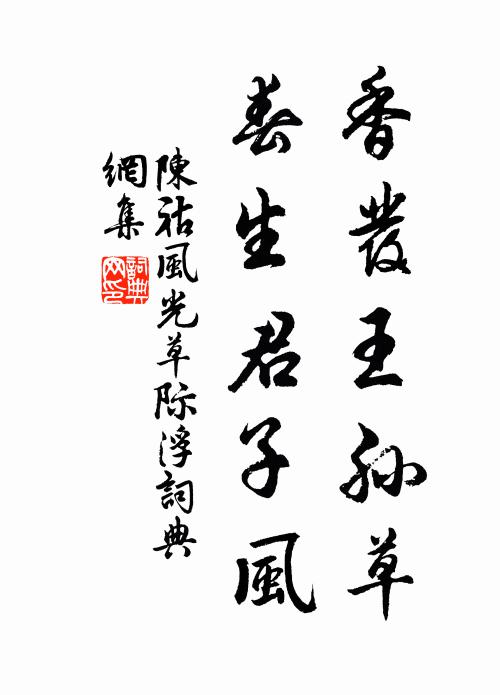 香發王孙草
春生君子風
陳祜風光草际浮詞典
網集
詞典網印